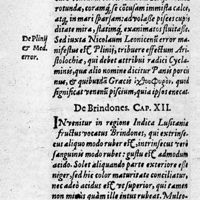 rotunda, coramq́; se cōtusam immista calce,
atq́; in mari sparsam: aduolasse pisces cupi
ditate mira, statimq́; exanimatos fluitasse.
De Plinij
& Med.
error.
Sed iuxta Nicolaum Leonicenū error ma
nifestus est Plinij, tribuere effectum Aris
tolochiæ, qui debet attribui radici Cycla-
minis, quæ alio nomine dicitur Panis por
cinus,
significat venenum piscium, quia ipsos enecat.
De Brindones. CAP. XII.
INvenitur in regione Indica Lusitania
fructus vocatus Brindones, qui extrinse-
cus aliquo modo ruber est, intrinsecus verò
sanguineo modo ruber: gustu est admodum
acido. Solet aliquando parte exteriore esse
niger, sed hic color maturitate conciliatur,
nec adeò acidus est vt superior, qui tamen
non minùs quàm ille intus rubeat. Multo-